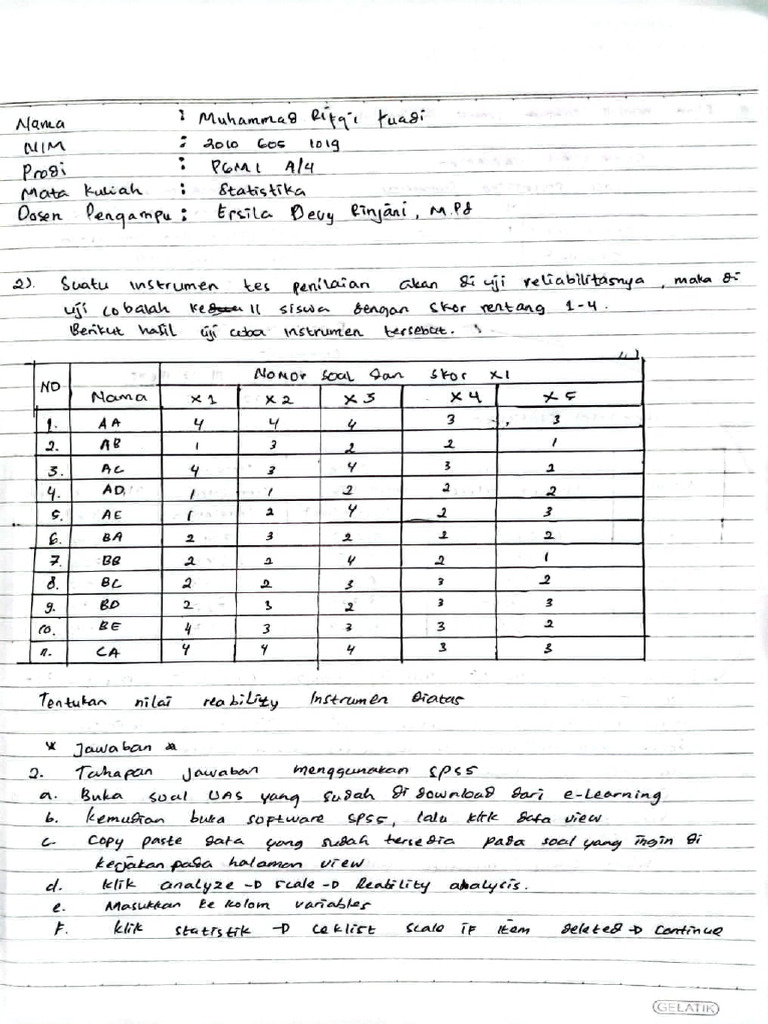 Nama : Muhammad Rifqi Fuadi
NIM : 2010 605 1019
Prodi : PGMI A/4
Mata Kuliah : Statistika
Dosen Pengampu : Ersila Devy Rinjani, M.Pd
2). Suatu instrumen tes penilaian akan di uji reliabilitasnya, maka di
uji cobalah ke 11 siswa dengan skor rentang 1-4.
Berikut hasil uji coba instrumen tersebut.
NO Nama Nomor soal dan skor x1
X1 X2 X3 X4 X5
1. AA 4 4 4 3 3
2. AB 1 3 2 2 1
3. AC 4 3 4 3 2
4. AD 1 1 2 2 2
5. AE 1 2 4 2 3
6. BA 2 3 2 2 2
7. BB 2 2 4 2 1
8. BC 2 2 3 3 2
9. BD 2 3 2 3 3
10. BE 4 3 3 3 2
11. CA 4 4 4 3 3
Tentukan nilai reability instrumen diatas
* Jawaban *
2. Tahapan jawaban menggunakan SPSS
a. Buka soal UAS yang sudah di download dari e-Learning
b. Kemudian buka software SPSS, lalu klik data view
c. Copy paste data yang sudah tersedia pada soal yang ingin di
kerjakan pada halaman view
d. klik analyze → scale → Reability analysis.
e. Masukkan ke kolom variables
f. klik statistik → ceklist scale if item deleted → continue
GELATIK